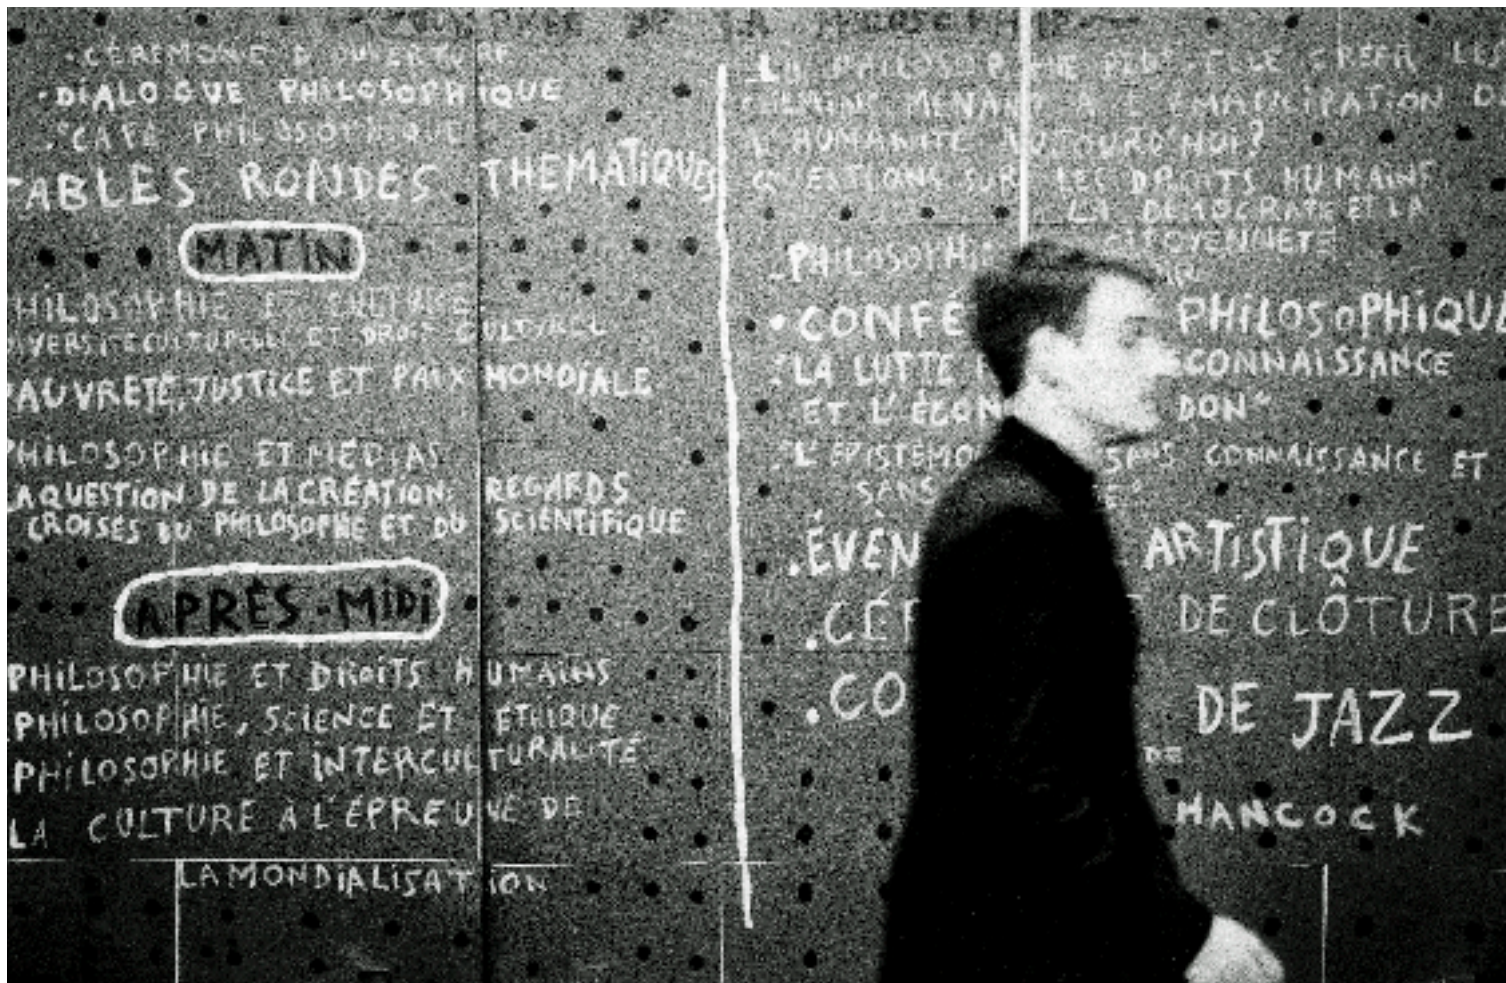 .CÉRÉMONIE D'OUVERTURE
.DIALOGUE PHILOSOPHIQUE
.CAFÉ PHILOSOPHIQUE
TABLES RONDES THEMATIQUES
MATIN
PHILOSOPHIE ET CULTURE
DIVERSITE CULTURELLE ET DROIT CULTUREL
PAUVRETÉ, JUSTICE ET PAIX MONDIALE
PHILOSOPHIE ET MÉDIAS
LA QUESTION DE LA CRÉATION: REGARDS
CROISÉS DU PHILOSOPHE ET DU SCIENTIFIQUE
APRÈS-MIDI
PHILOSOPHIE ET DROITS HUMAINS
PHILOSOPHIE, SCIENCE ET ETHIQUE
PHILOSOPHIE ET INTERCULTURALITÉ
LA CULTURE À L'ÉPREUVE DE
LA MONDIALISATION
LA PHILOSOPHIE PEUT-ELLE CRÉER LES
CHEMINS MENANT À L'EMANCIPATION DE
L'HUMANITÉ AUJOURD'HUI?
QUESTIONS SUR LES DROITS HUMAINS,
LA DEMOCRATIE ET LA
CITOYENNETÉ
PHILOSOPHI
.CONFÉ PHILOSOPHIQUE
LA LUTTE CONNAISSANCE
ET L'ÉCON DON"
L'ÉPISTÉMO SANS CONNAISSANCE ET
SANS
.ÉVÈN ARTISTIQUE
.CÉR DE CLÔTURE
.CO DE JAZZ
DE
HANCOCK